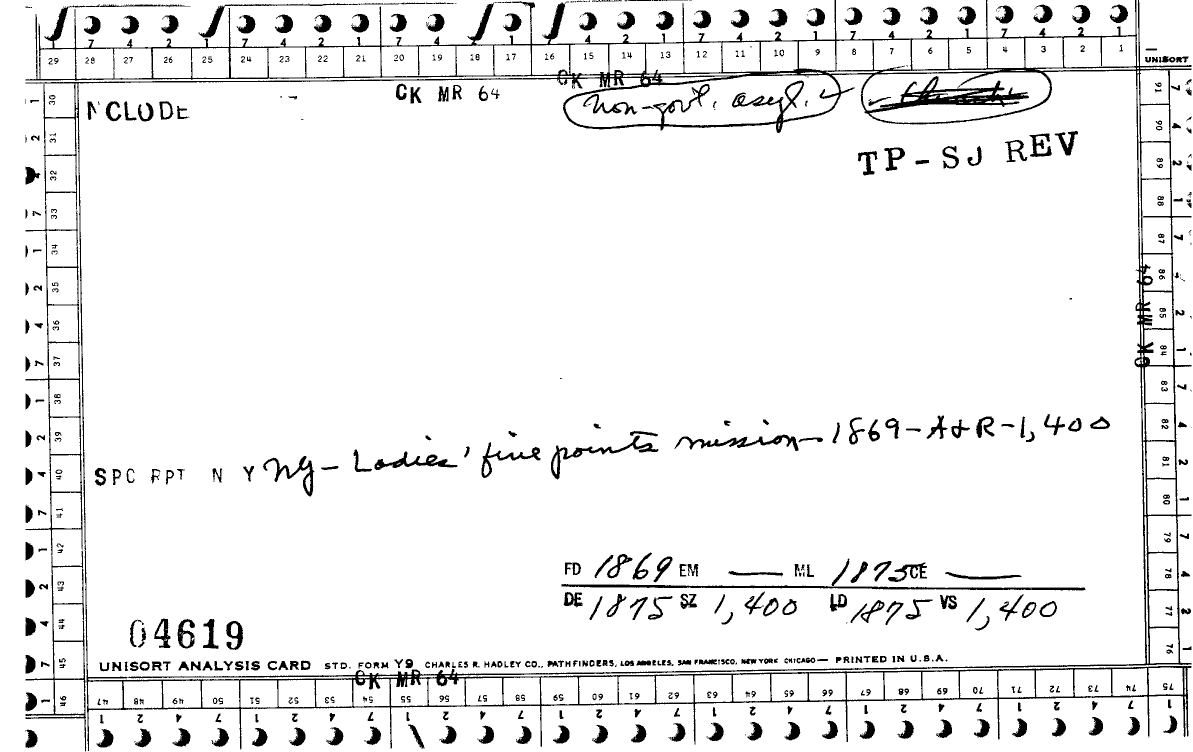 7 4 2 1 7 4 2 1 7 4 2 1 7 4 2 1 7 4 2 1 7 4 2 1 7 4 2 1
29 28 27 26 25 24 23 22 21 20 19 18 17 16 15 14 13 12 11 10 9 8 7 6 5 4 3 2 1 UNISORT
CK MR 64 CK MR 64
NCLODE non-gov't. asyl.
TP-SJ REV
CK MR 64
SPC RPT N Y NG - Ladies' five points mission - 1869 - A & R - 1,400
FD 1869 EM — ML 1875 CE —
DE 1875 SZ 1,400 LD 1875 VS 1,400
04619
UNISORT ANALYSIS CARD STD. FORM Y9 CHARLES R. HADLEY CO., PATHFINDERS, LOS ANGELES, SAN FRANCISCO, NEW YORK CHICAGO — PRINTED IN U.S.A.
CK MR 64
30 31 32 33 34 35 36 37 38 39 40 41 42 43 44 45 46
47 48 49 50 51 52 53 54 55 56 57 58 59 60 61 62 63 64 65 66 67 68 69 70 71 72 73 74 75
1 2 4 7 1 2 4 7 1 2 4 7 1 2 4 7 1 2 4 7 1 2 4 7 1 2 4 7 1
76 77 78 79 80 81 82 83 84 85 86 87 88 89 90 91